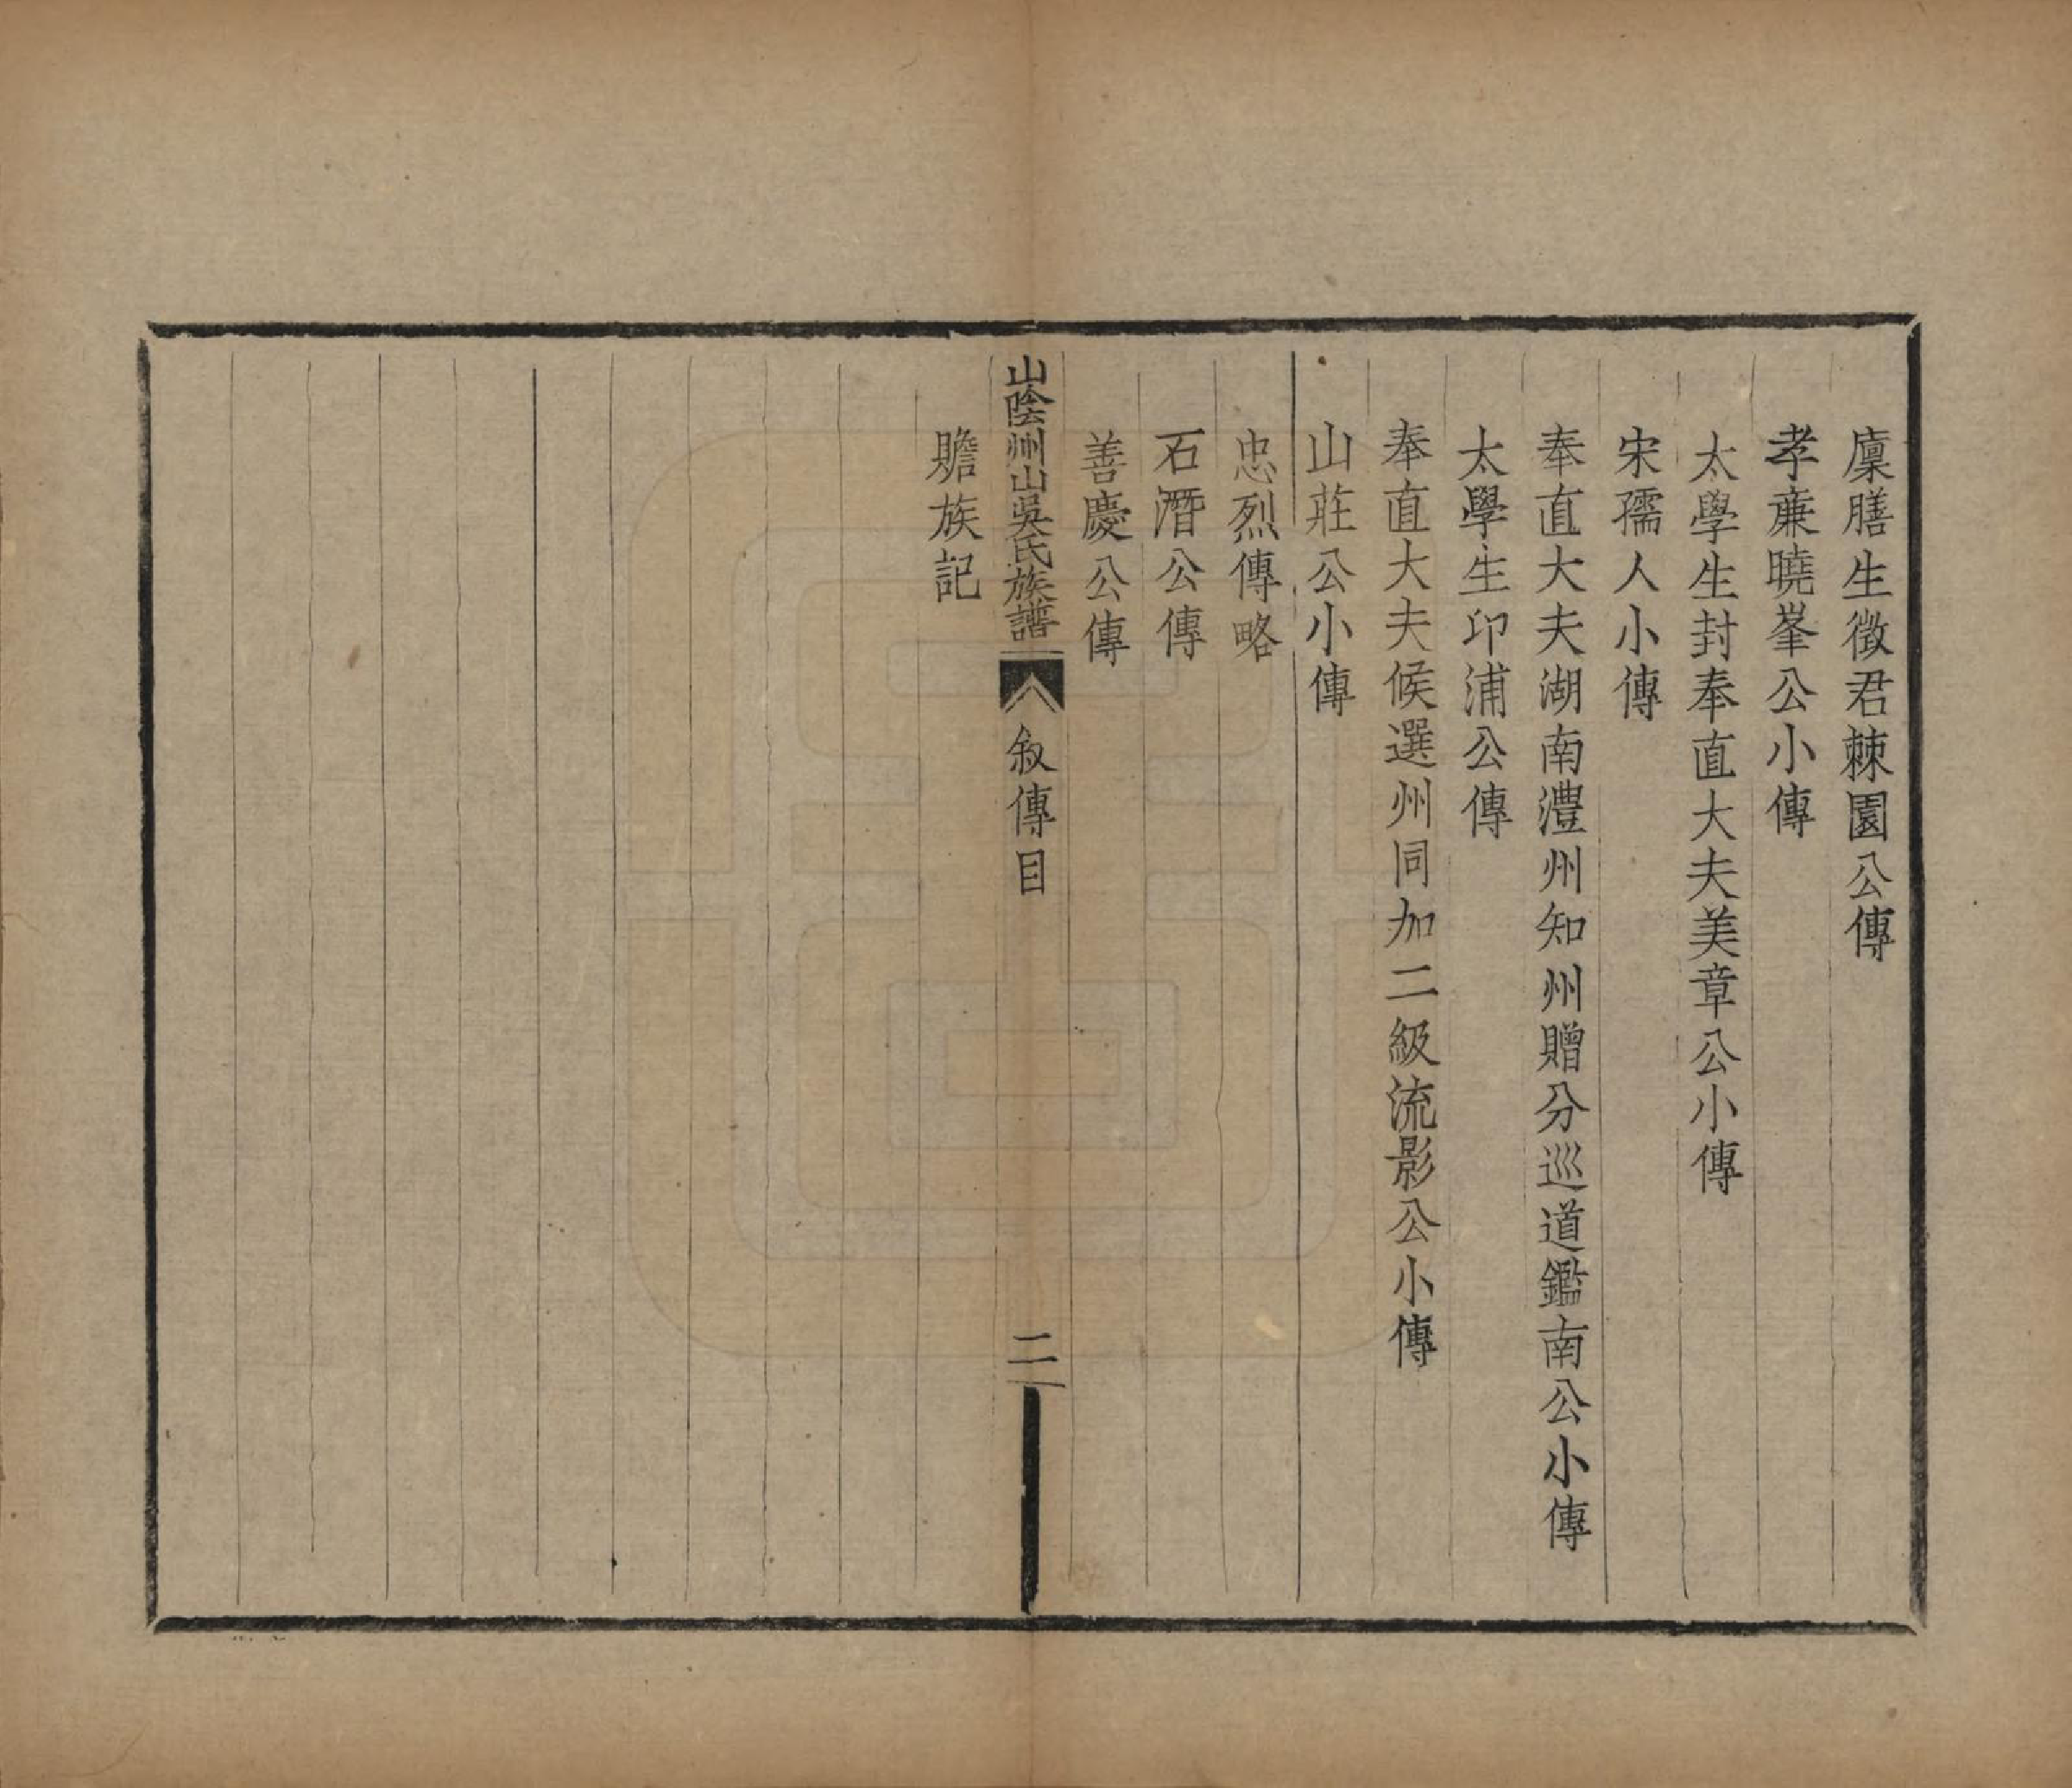 廩膳生徵君棘園公傳
孝亷曉峯公小傳
太學生封奉直大夫美章公小傳
宋孺人小傳
奉直大夫湖南澧州知州贈分巡道鑑南公小傳
太學生印浦公傳
奉直大夫候選州同加二級流影公小傳
山莊公小傳
忠烈傳略
石潛公傳
善慶公傳
山陰州山吳氏族譜 叙傳目 二
贍族記